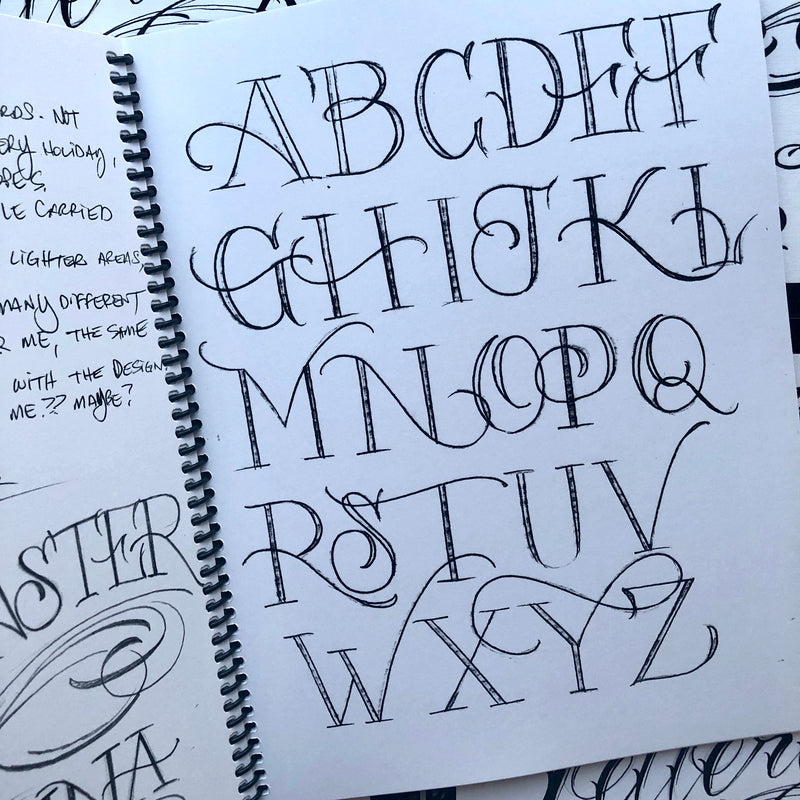 RDS. NOT
ERY HOLIDAY,
LE CARRIED
LIGHTER AREAS,
MANY DIFFERENT
R ME, THE SAME
WITH THE DESIGN.
ME?? MAYBE?
NSTER
NA
ABCDEF
GHIJKL
MNOPQ
RSTUV
WXYZ